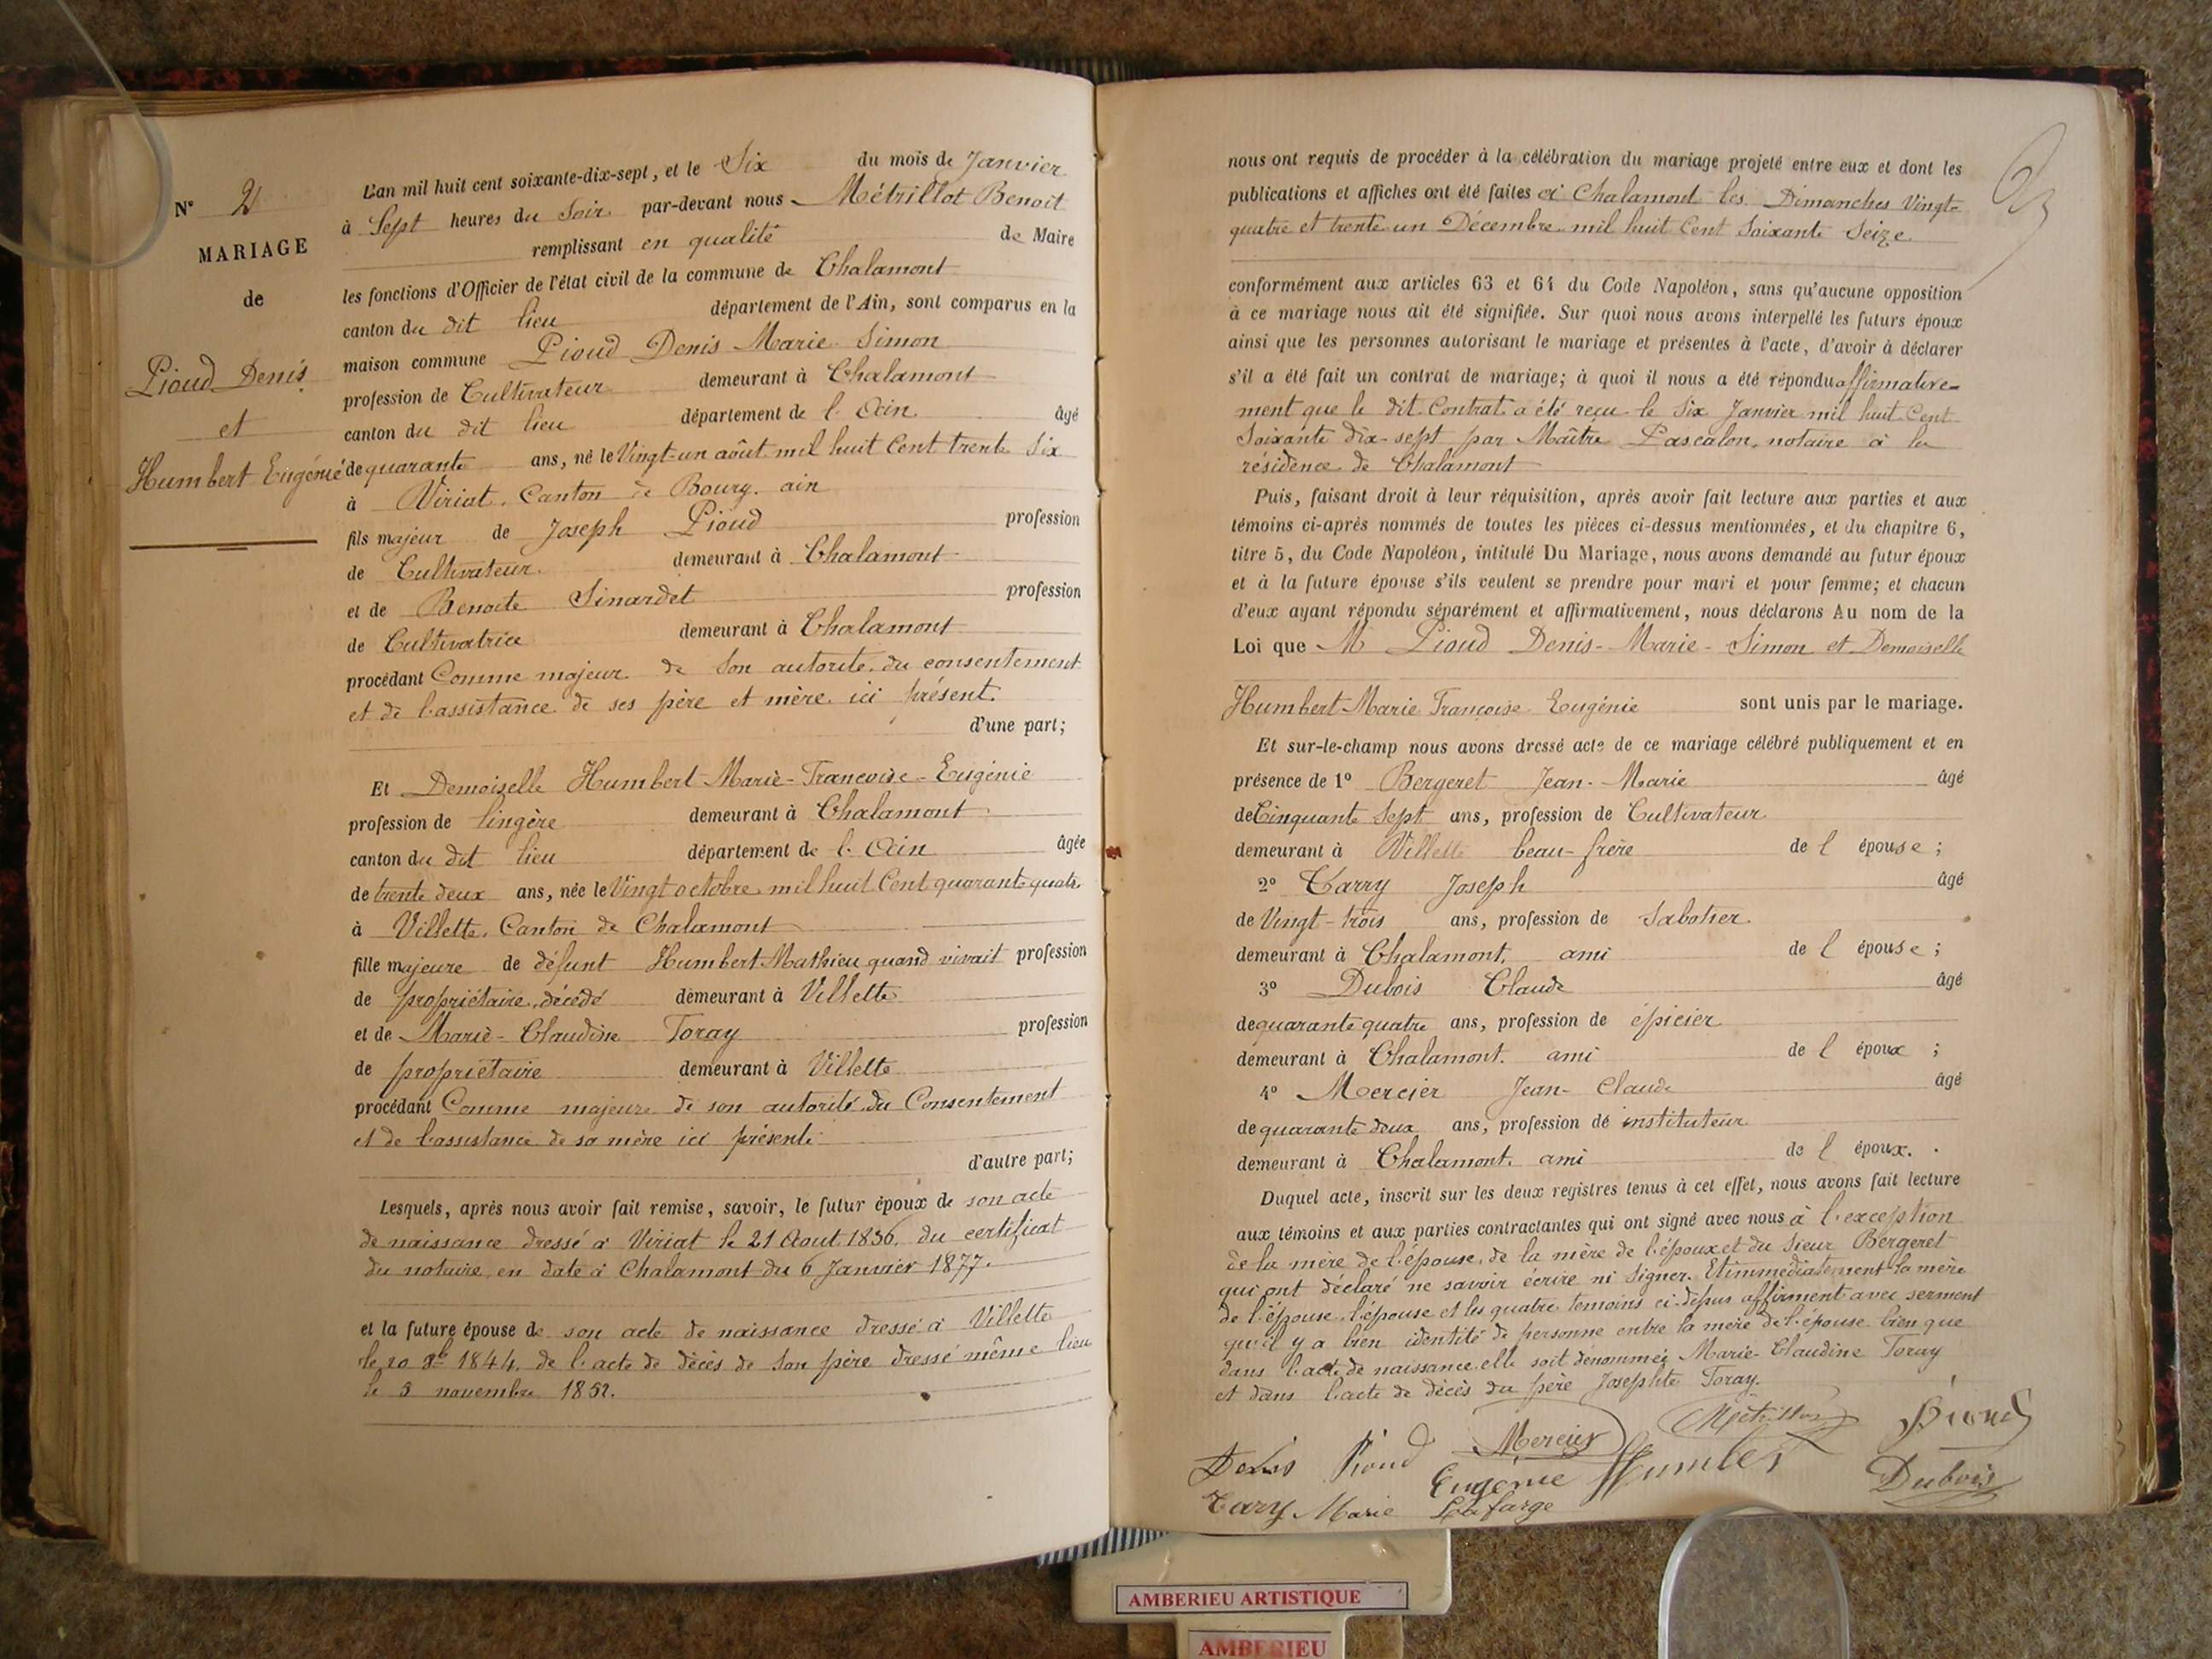 N° 2
MARIAGE
de
Pioud Denis
et
Humbert Eugénie
L'an mil huit cent soixante-dix-sept, et le Six du mois de Janvier
à Sept heures du Soir par-devant nous Métrillot Benoit
remplissant en qualité de Maire
les fonctions d'Officier de l'état civil de la commune de Chalamont
canton du dit lieu département de l'Ain, sont comparus en la
maison commune Pioud Denis Marie Simon
profession de Cultivateur demeurant à Chalamont
canton du dit lieu département de l'Ain âgé
de quarante ans, né le Vingt-un août mil huit Cent trente Six
à Viriat, Canton de Bourg. ain
fils majeur de Joseph Pioud profession
de Cultivateur demeurant à Chalamont
et de Benoite Sinardet profession
de Cultivatrice demeurant à Chalamont
procédant Comme majeur de Son autorité, du consentement
et de l'assistance de ses père et mère ici présent.
d'une part;
Et Demoiselle Humbert-Marie-Francoise-Eugénie
profession de lingère demeurant à Chalamont
canton du dit lieu département de l'Ain âgée
de trente deux ans, née le Vingt octobre mil huit Cent quarante quatre
à Villette, Canton de Chalamont
fille majeure de défunt Humbert Mathieu quand vivait profession
de propriétaire, décédé demeurant à Villette
et de Marie-Claudine Toray profession
de propriétaire demeurant à Villette
procédant Comme majeure de son autorité, du Consentement
et de l'assistance de sa mère ici présente
d'autre part;
Lesquels, après nous avoir fait remise, savoir, le futur époux de son acte
de naissance dressé à Viriat le 21 Aout 1836, du certificat
du notaire, en date à Chalamont du 6 Janvier 1877.
et la future épouse de son acte de naissance dressé à Villette
le 20 8b 1844, de l'acte de décès de Son père dressé même lieu
le 5 novembre 1852.
nous ont requis de procéder à la célébration du mariage projeté entre eux et dont les
publications et affiches ont été faites à Chalamont les Dimanches Vingt-
quatre et trente un Décembre mil huit Cent Soixante Seize
conformément aux articles 63 et 64 du Code Napoléon, sans qu'aucune opposition
à ce mariage nous ait été signifiée. Sur quoi nous avons interpellé les futurs époux
ainsi que les personnes autorisant le mariage et présentes à l'acte, d'avoir à déclarer
s'il a été fait un contrat de mariage; à quoi il nous a été répondu affirmative-
ment que le dit Contrat a été reçu le Six Janvier mil huit Cent
Soixante dix-sept par Maître Pascalon, notaire à la
résidence de Chalamont
Puis, faisant droit à leur réquisition, après avoir fait lecture aux parties et aux
témoins ci-après nommés de toutes les pièces ci-dessus mentionnées, et du chapitre 6,
titre 5, du Code Napoléon, intitulé Du Mariage, nous avons demandé au futur époux
et à la future épouse s'ils veulent se prendre pour mari et pour femme; et chacun
d'eux ayant répondu séparément et affirmativement, nous déclarons Au nom de la
Loi que M Pioud Denis-Marie-Simon et Demoiselle
Humbert-Marie Françoise Eugénie sont unis par le mariage.
Et sur-le-champ nous avons dressé acte de ce mariage célébré publiquement et en
présence de 1° Bergeret Jean-Marie âgé
de Cinquante Sept ans, profession de Cultivateur
demeurant à Villette beau-frère de l'épouse;
2° Carry Joseph âgé
de Vingt-trois ans, profession de Sabotier
demeurant à Chalamont, ami de l'épouse;
3° Dubois Claude âgé
de quarante quatre ans, profession de épicier
demeurant à Chalamont. ami de l'époux;
4° Mercier Jean-Claude âgé
de quarante deux ans, profession de instituteur
demeurant à Chalamont. ami de l'époux.
Duquel acte, inscrit sur les deux registres tenus à cet effet, nous avons fait lecture
aux témoins et aux parties contractantes qui ont signé avec nous à l'exception
de la mère de l'épouse, de la mère de l'époux et du Sieur Bergeret
qui ont déclaré ne savoir écrire ni signer. Et immédiatement la mère
de l'épouse, l'épouse et les quatre temoins ci-dessus affirment avec serment
qu'il y a bien identité de personne entre la mère de l'épouse bien que
dans l'acte de naissance elle soit dénommée Marie-Claudine Toray
et dans l'acte de décès du père Josephte Toray.
Denis Pioud Mercier Métrillot Pioud
Eugénie Humbert Dubois
Cary Marie Lafarge
AMBERIEU ARTISTIQUE
AMBERIEU